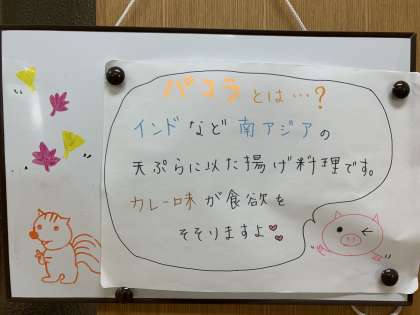 パコラとは…?
インドなど南アジアの
天ぷらに似た揚げ料理です。
カレー味が食欲を
そそりますよ